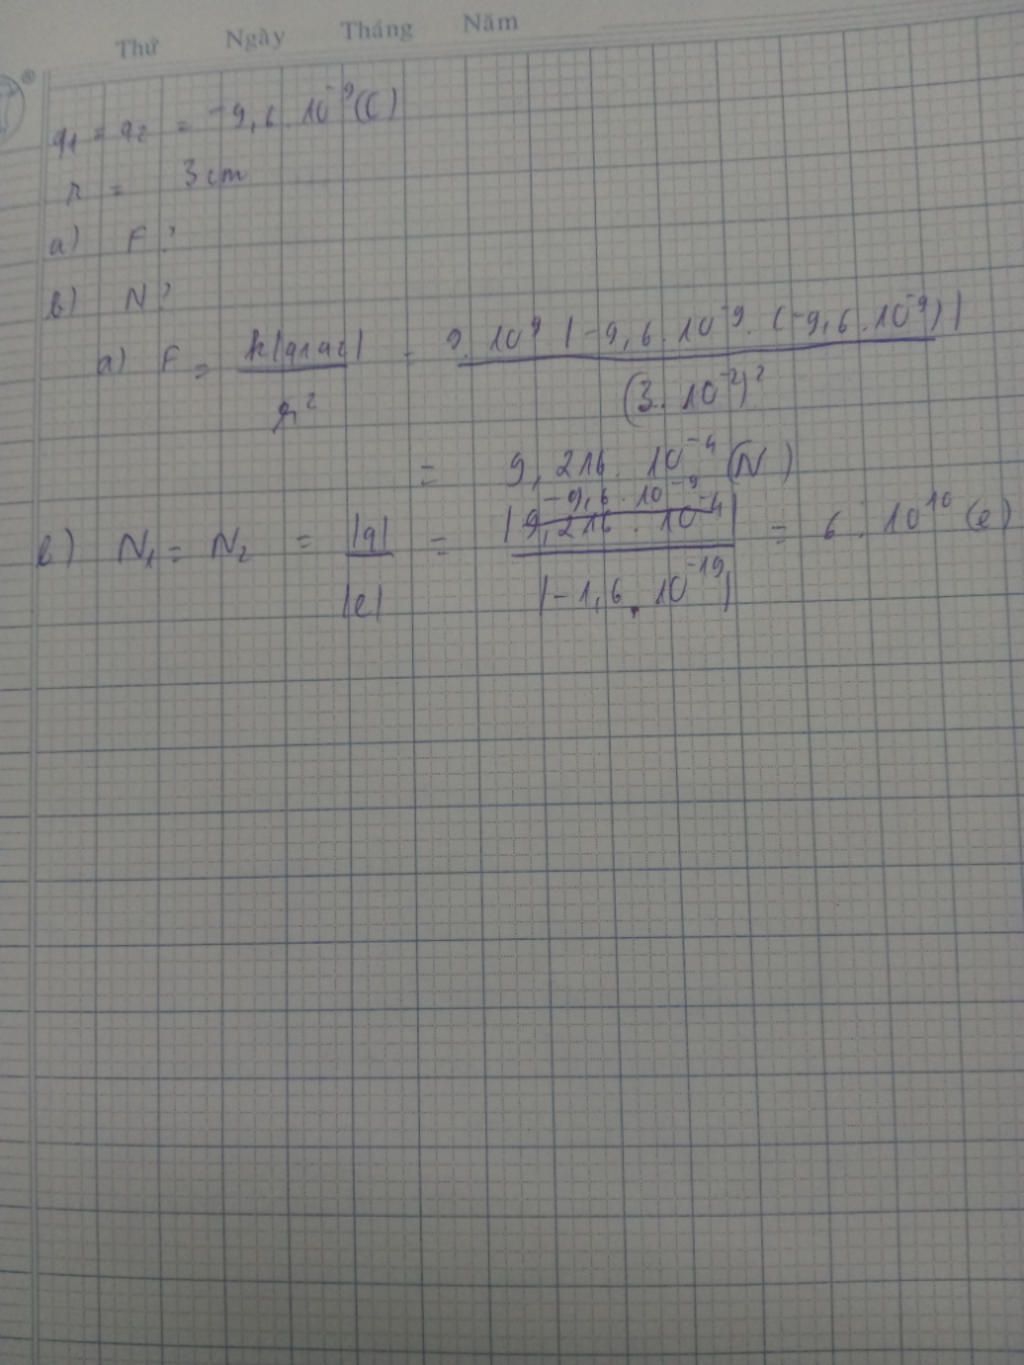 Thứ Ngày Tháng Năm
q1 = q2 = -9,6. 10^-9 (C)
r = 3 cm
a) F?
b) N?
a) F = k|q1q2| / r² = 9. 10^9 |-9,6. 10^-9. (-9,6. 10^-9)| / (3. 10^-2)²
= 9,216. 10^-4 (N)
b) N1 = N2 = |q| / |e| = |-9,6. 10^-9| / |-1,6. 10^-19| = 6. 10^10 (e)